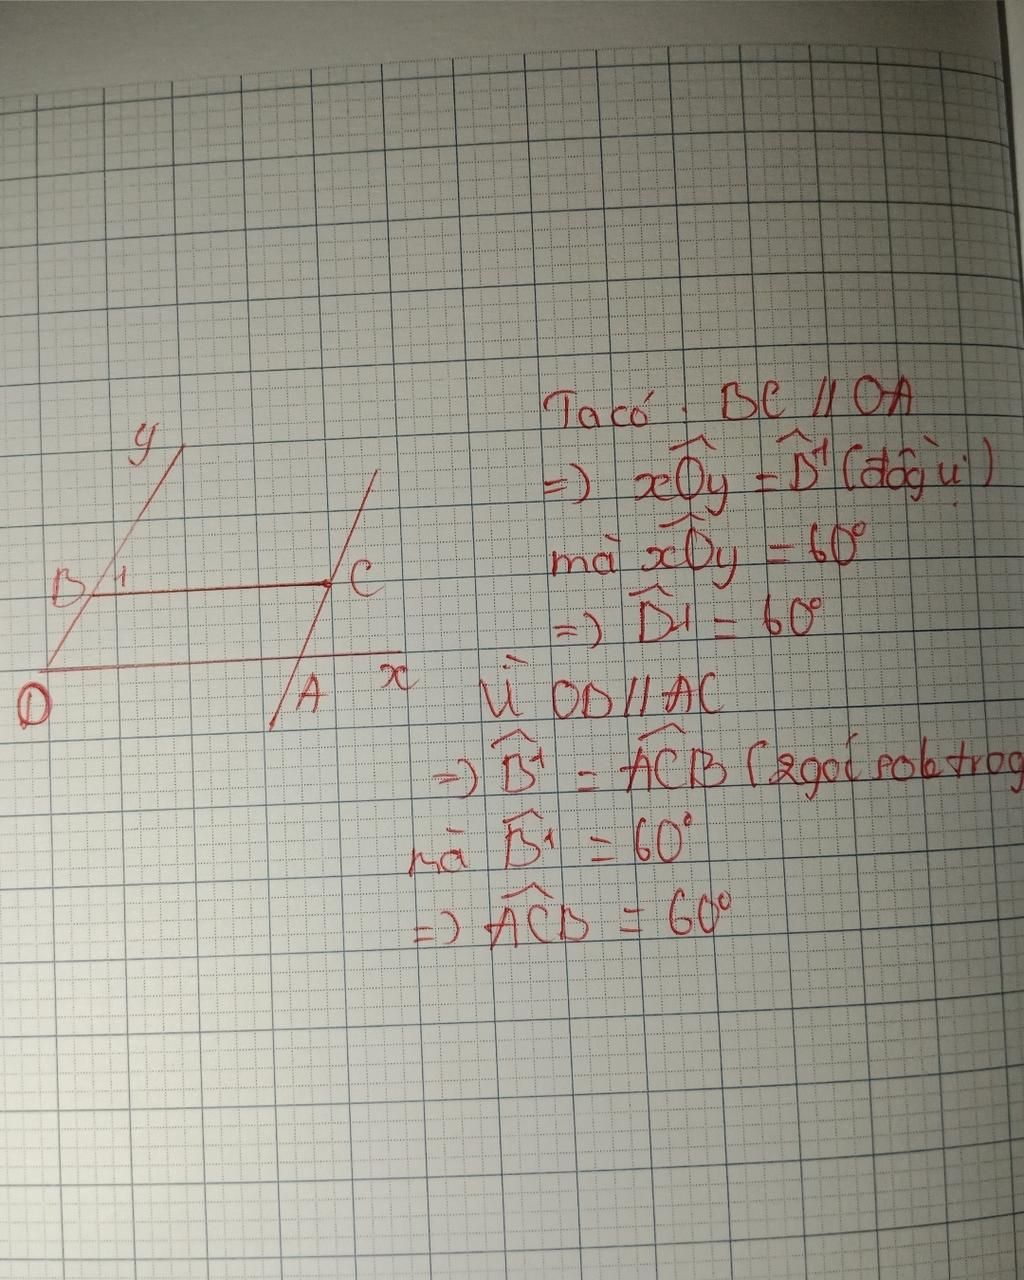 y
B 1
C
O
A
x
Ta có: BC // OA
=> xÔy = B̂1 (đôg vị)
mà xÔy = 60°
=> B̂1 = 60°
Vì OB // AC
=> B̂1 = ACB (2 goc sole trog
mà B̂1 = 60°
=> ACB = 60°